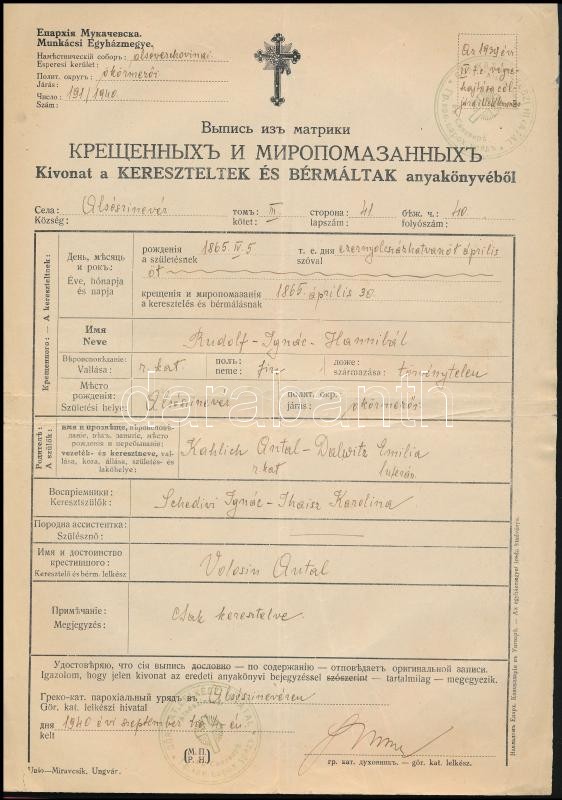 Епархія Мукачевска.
Munkácsi Egyházmegye.
Намѣстническій соборъ: alsóverchovinai
Esperesi kerület:
Полит. округъ: ökörmezői
Járás:
Число: 191/1940
Szám:
Az 1939 évi
IV t.c. végre-
hajtása cél-
jára illetékmentes
Выпись изъ матрики
КРЕЩЕННЫХЪ И МИРОПОМАЗАННЫХЪ
Kivonat a KERESZTELTEK ÉS BÉRMÁLTAK anyakönyvéből
Села: Alsószinevér томъ: III сторона: 41 бѣж. ч.: 40
Község: kötet: lapszám: folyószám:
Крещенного: — A kereszteltnek:
День, мѣсяць и рокъ:
Éve, hónapja és napja
рожденія 1865 IV 5 т. е. дня ezernyolcszázhatvanöt április
a születésnek szóval
öt
крещенія и миропомазанія 1865 április 30
a keresztelés és bérmálásnak
Имя Rudolf-Ignác-Hannibál
Neve
Вѣроисповѣданіе: r. kat. полъ: fiu ложе: törvénytelen
Vallása: neme: származása:
Мѣсто рожденія: Alsószinevér полит. окр. ökörmezői
Születési helye: járás:
Родителѣ: A szülők:
имя и прозвище, вѣроисповѣ-
даніе, вѣкъ, занятіе, мѣсто
рожденія и перебыванія:
vezeték- és keresztneve, val-
lása, kora, állása, születés- és
lakóhelye:
Kahlich Antal - Dalwitz Emilia
r. kat luterán
Воспріемники: Schedivi Ignác - Thaisz Karolina
Keresztszülők:
Породна ассистентка:
Szülésznő:
Имя и достоинство
крестившого: Volosin Antal
Keresztelő és bérm. lelkész
Примѣчаніе: csak keresztelve
Megjegyzés:
Удостовѣряю, что сія выпись дословно — по содержанію — отповѣдаетъ оригинальной записи.
Igazolom, hogy jelen kivonat az eredeti anyakönyvi bejegyzéssel szószerint — tartalmilag — megegyezik.
Греко-кат. парохіальный урядъ въ Alsószinevéren
Gör. kat. lelkészi hivatal
дня 1940 évi szeptember hó 4 én
kelt
(М. П.)
P. H.
гр. кат. духовник. — gör. kat. lelkész.
Unio—Miravcsik, Ungvár.
darabanth